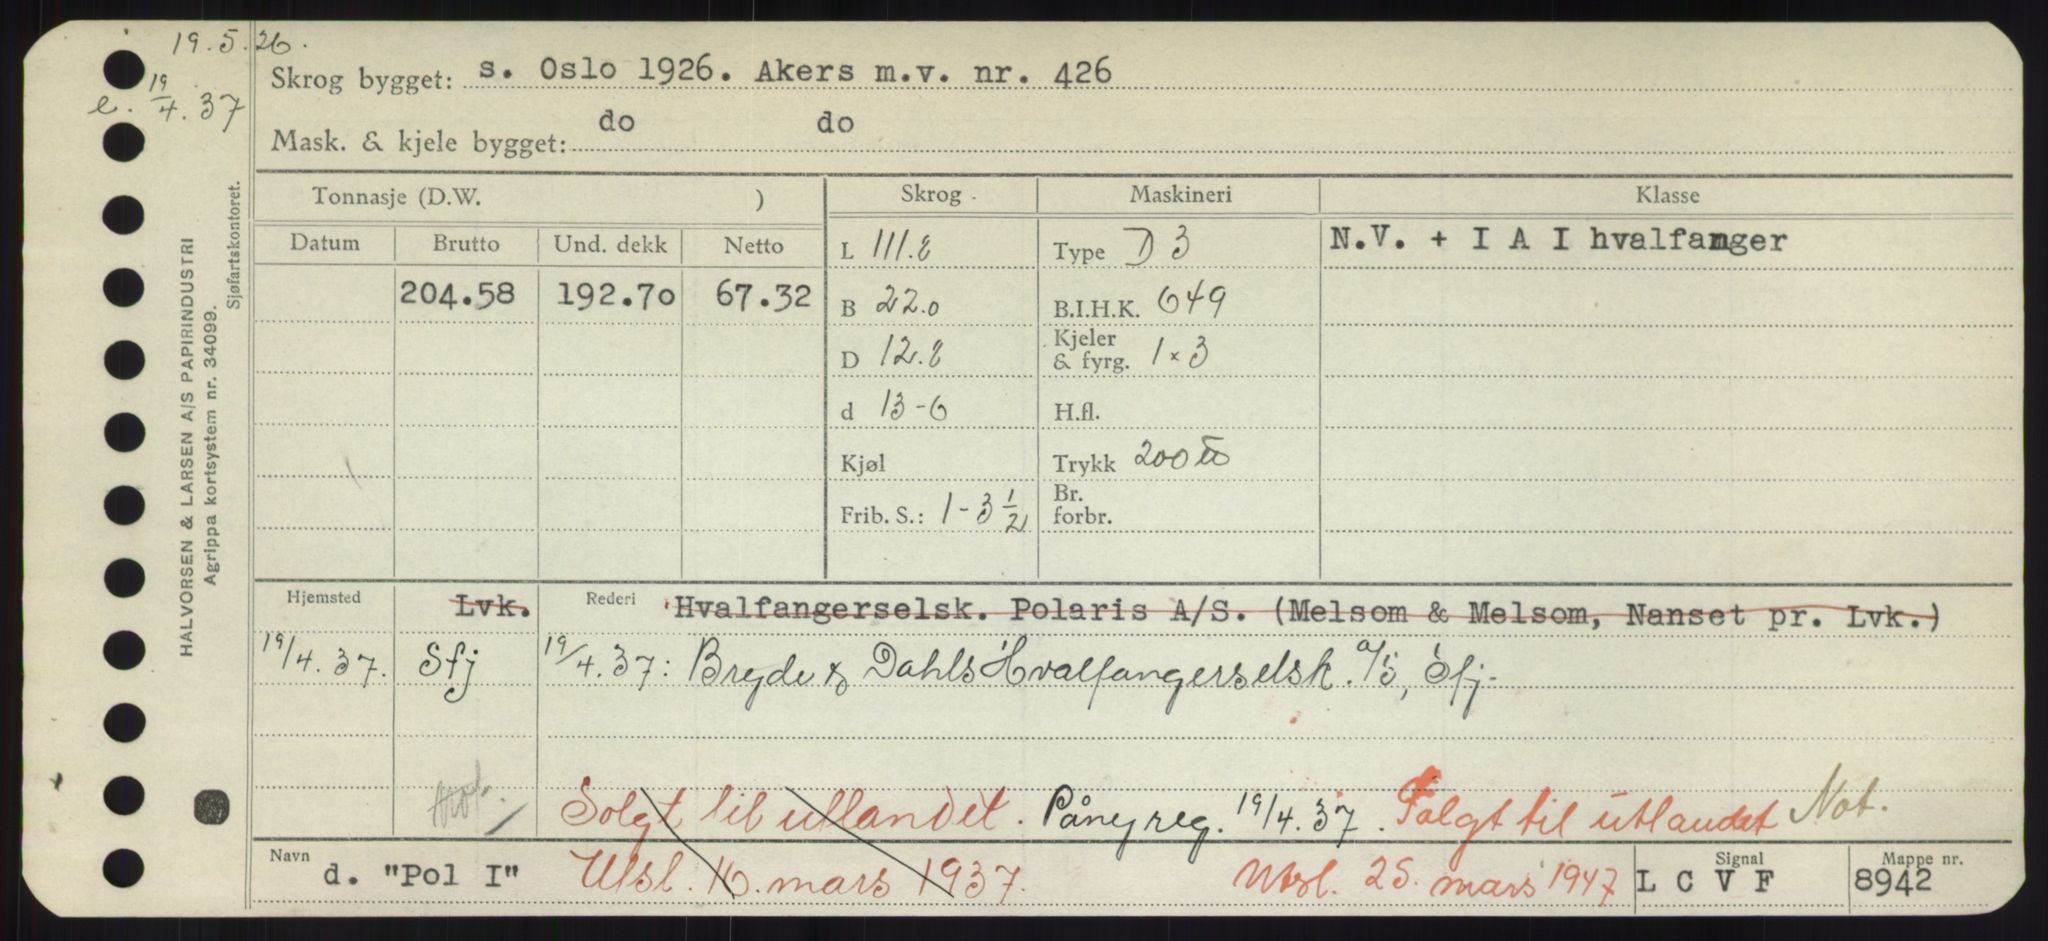 19.5.26.
e. 19/4.37
Skrog bygget: s. Oslo 1926. Akers m.v. nr. 426
Mask. & kjele bygget: do do
HALVORSEN & LARSEN A/S PAPIRINDUSTRI
Agrippa kortsystem nr. 34099.
Sjøfartskontoret.
Tonnasje (D.W. ) Skrog Maskineri Klasse
Datum Brutto Und. dekk Netto
204.58 192.70 67.32
L 111.8
B 22.0
D 12.8
d 13-6
Kjøl
Frib. S.: 1-3 1/2
Type D 3
B.I.H.K. 649
Kjeler & fyrg. 1 x 3
H.fl.
Trykk 200 lb
Br. forbr.
N.V. + I A I hvalfanger
Hjemsted Lvk. Rederi Hvalfangerselsk. Polaris A/S. (Melsom & Melsom, Nanset pr. Lvk.)
19/4.37. Sfj 19/4.37: Bryde & Dahls Hvalfangerselsk. A/S, Sfj.
Not. Solgt til utlandet. Påny reg. 19/4.37. Solgt til utlandet Not.
Navn d. "Pol I" Utsl. 16. mars 1937. Utsl. 25. mars 1947 Signal L C V F Mappe nr. 8942